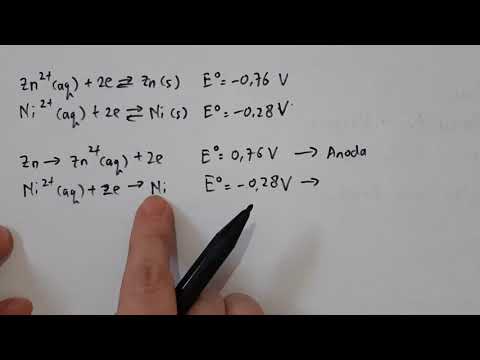 Zn²⁺(aq) + 2e ⇌ Zn(s) E° = -0,76 V
Ni²⁺(aq) + 2e ⇌ Ni(s) E° = -0,28 V
Zn → Zn²⁺(aq) + 2e E° = 0,76 V → Anoda
Ni²⁺(aq) + 2e → Ni E° = -0,28 V →